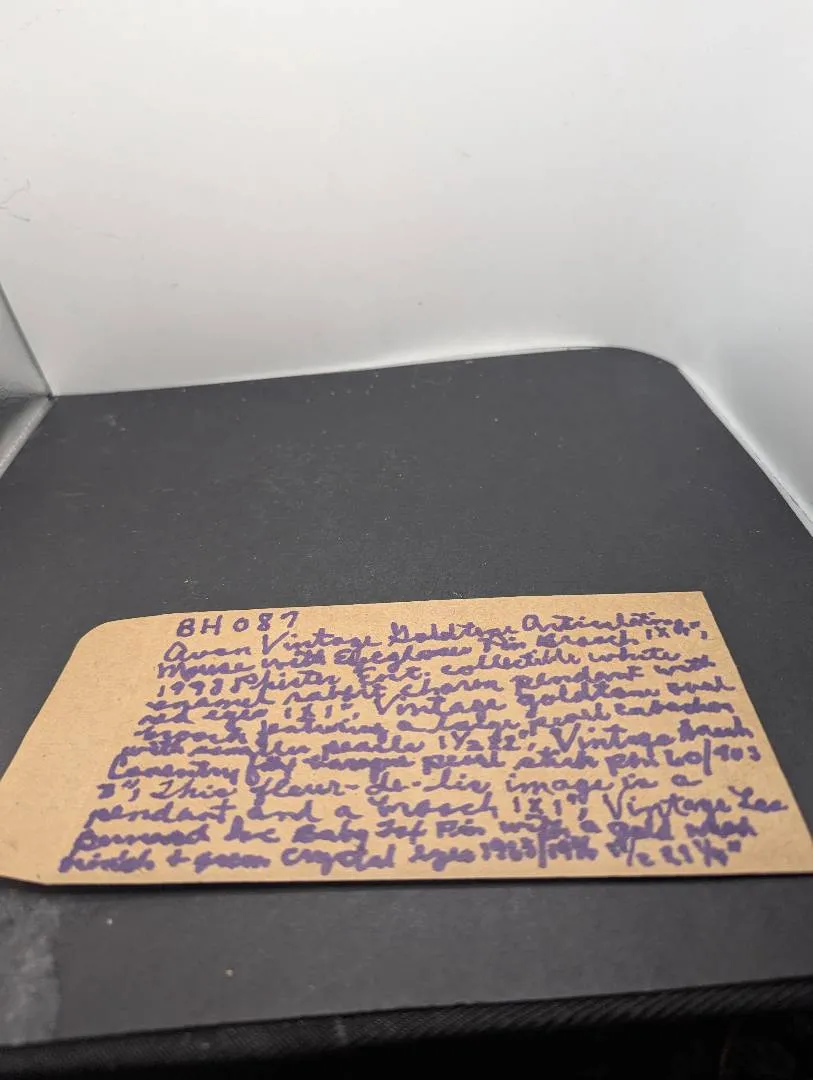 BH 087
Avon Vintage Goldtone Articulating
Mouse with Eyeglasses Pin Brooch 1 x
1993 collectible white
enamel rabbit charm pendant with
red eyes 1 x 1", Vintage goldtone oval
brooch featuring a large pearl cabochon
with smaller pearls 1 1/2 x 2", Vintage
Coventry faux baroque pearl stick pin 60/
3", This fleur-de-lis image is a
pendant and a brooch 1 x 1", Vintage
Inc Baby Pin with a gold wash
finish + green crystal eyes